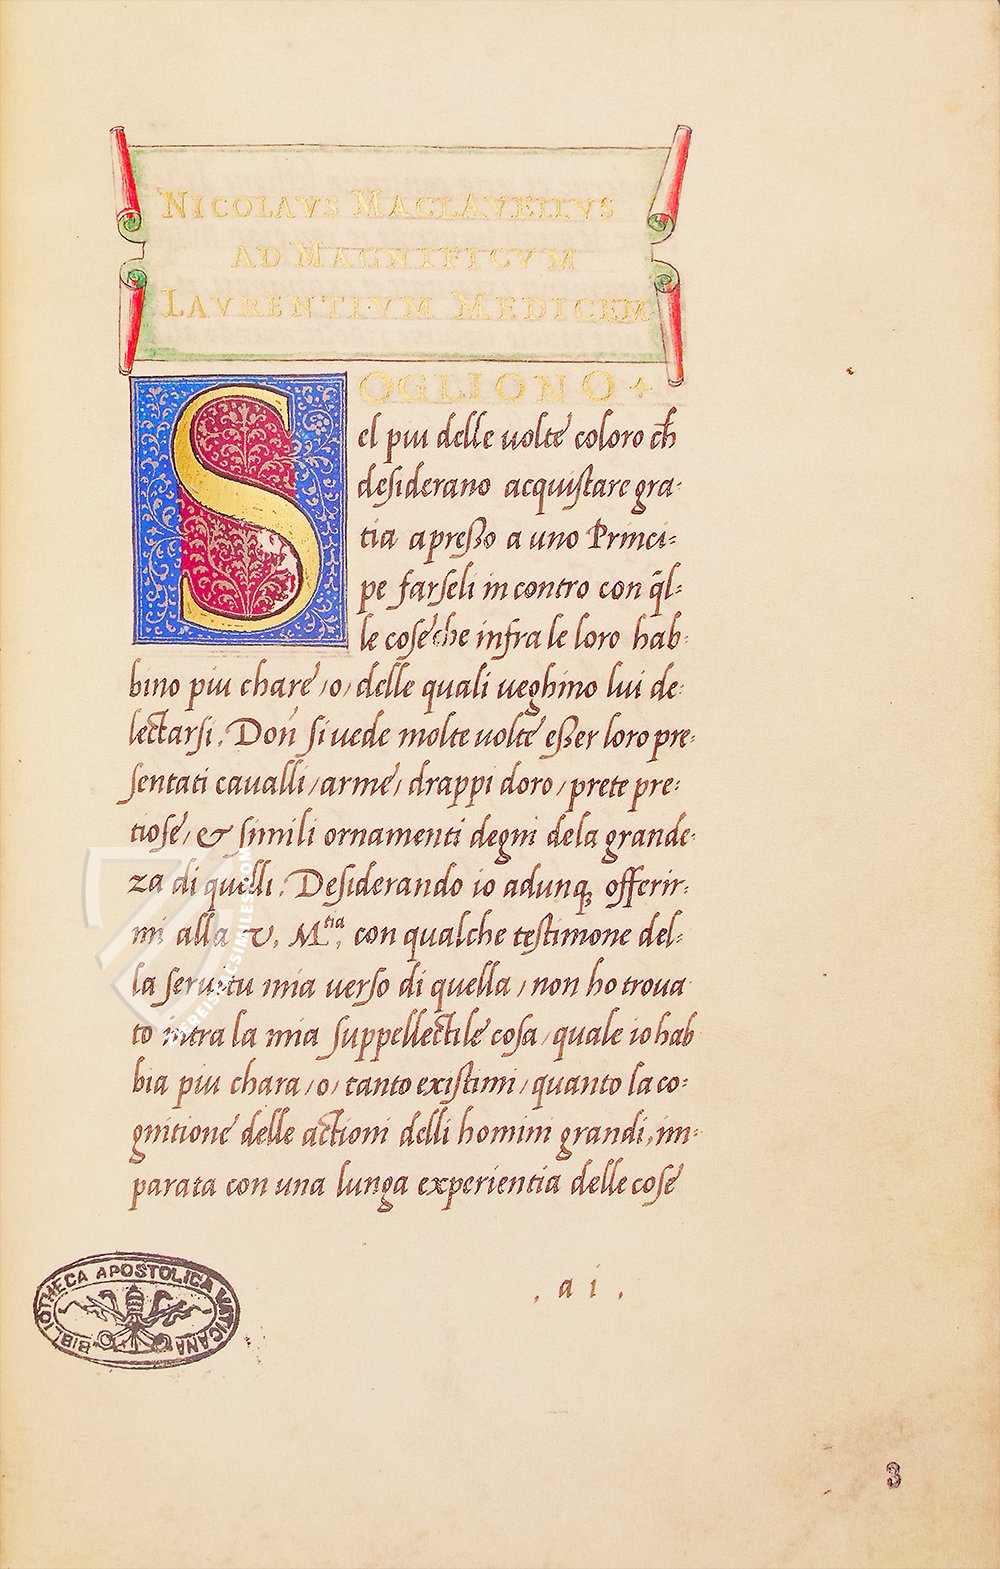 NICOLAVS MACLAVELLVS
AD MAGNIFICVM
LAVRENTIVM MEDICEM
SOGLIONO
el piu delle uolte coloro ch̄
desiderano acquistare gra-
tia apresso a uno Princi-
pe farseli incontro con q̄l-
le cose che infra le loro hab-
bino piu chare /o/ delle quali ueghino lui de-
lectarsi. Don̄ si uede molte uolte esser loro pre-
sentati caualli / arme / drappi doro / prete pre-
tiose / & simili ornamenti degni dela grande-
za di quelli. Desiderando io adunq; offerir-
mi alla V. M.tia. con qualche testimone del-
la seruitu mia uerso di quella / non ho troua
to intra la mia suppellectile cosa / quale io hab
bia piu chara /o/ tanto existimi / quanto la co-
gnitione delle actioni delli homini grandi, im-
parata con una lunga experientia delle cose
. a i .
BIBLIOTHECA APOSTOLICA VATICANA
3